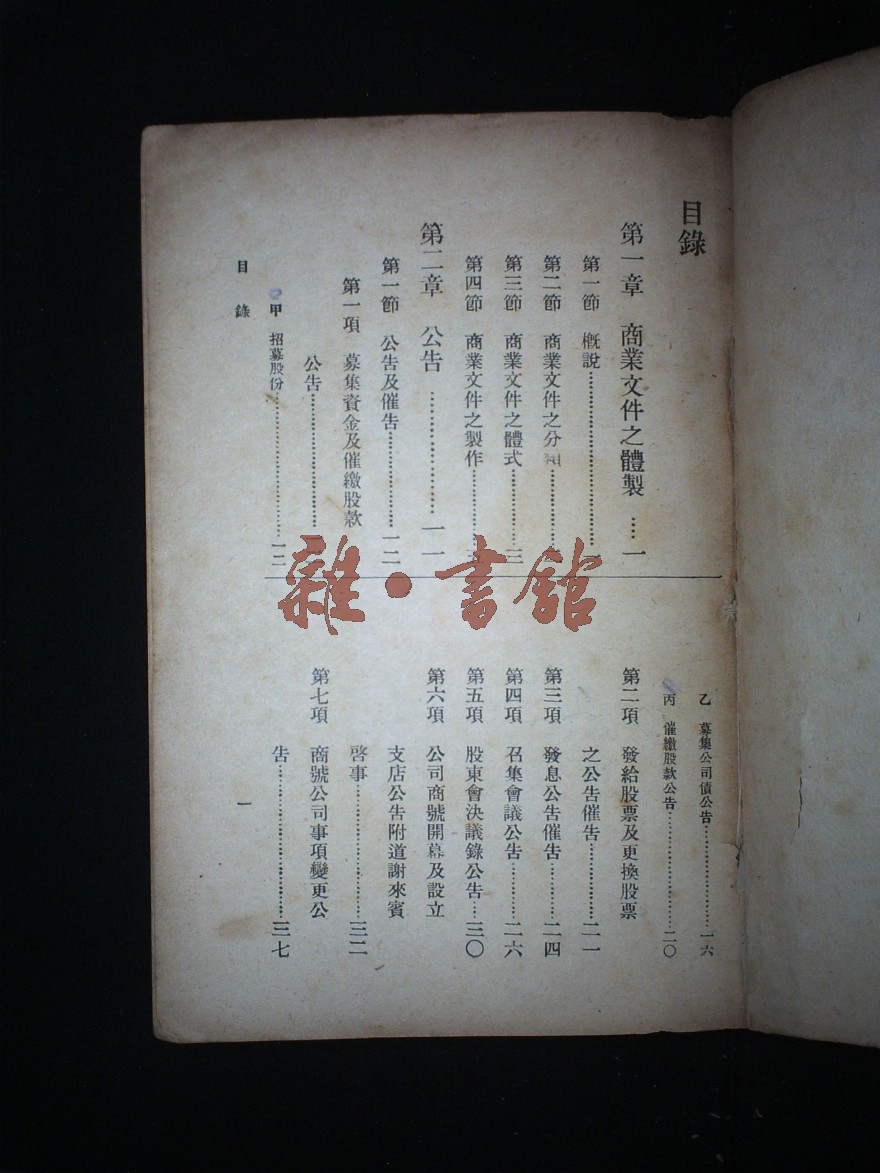 目錄
第一章 商業文件之體製……一
第一節 概說……
第二節 商業文件之分……
第三節 商業文件之體式……三
第四節 商業文件之製作……
第二章 公告……一一
第一節 公告及催告……一二
第一項 募集資金及催繳股款
公告……
甲 招募股份……一三
乙 募集公司債公告……一六
丙 催繳股款公告……二〇
第二項 發給股票及更換股票
之公告催告……二一
第三項 發息公告催告……二四
第四項 召集會議公告……二六
第五項 股東會決議錄公告……三〇
第六項 公司商號開幕及設立
支店公告附道謝來賓
啓事……三二
第七項 商號公司事項變更公
告……三七
目錄 一
雜·書館